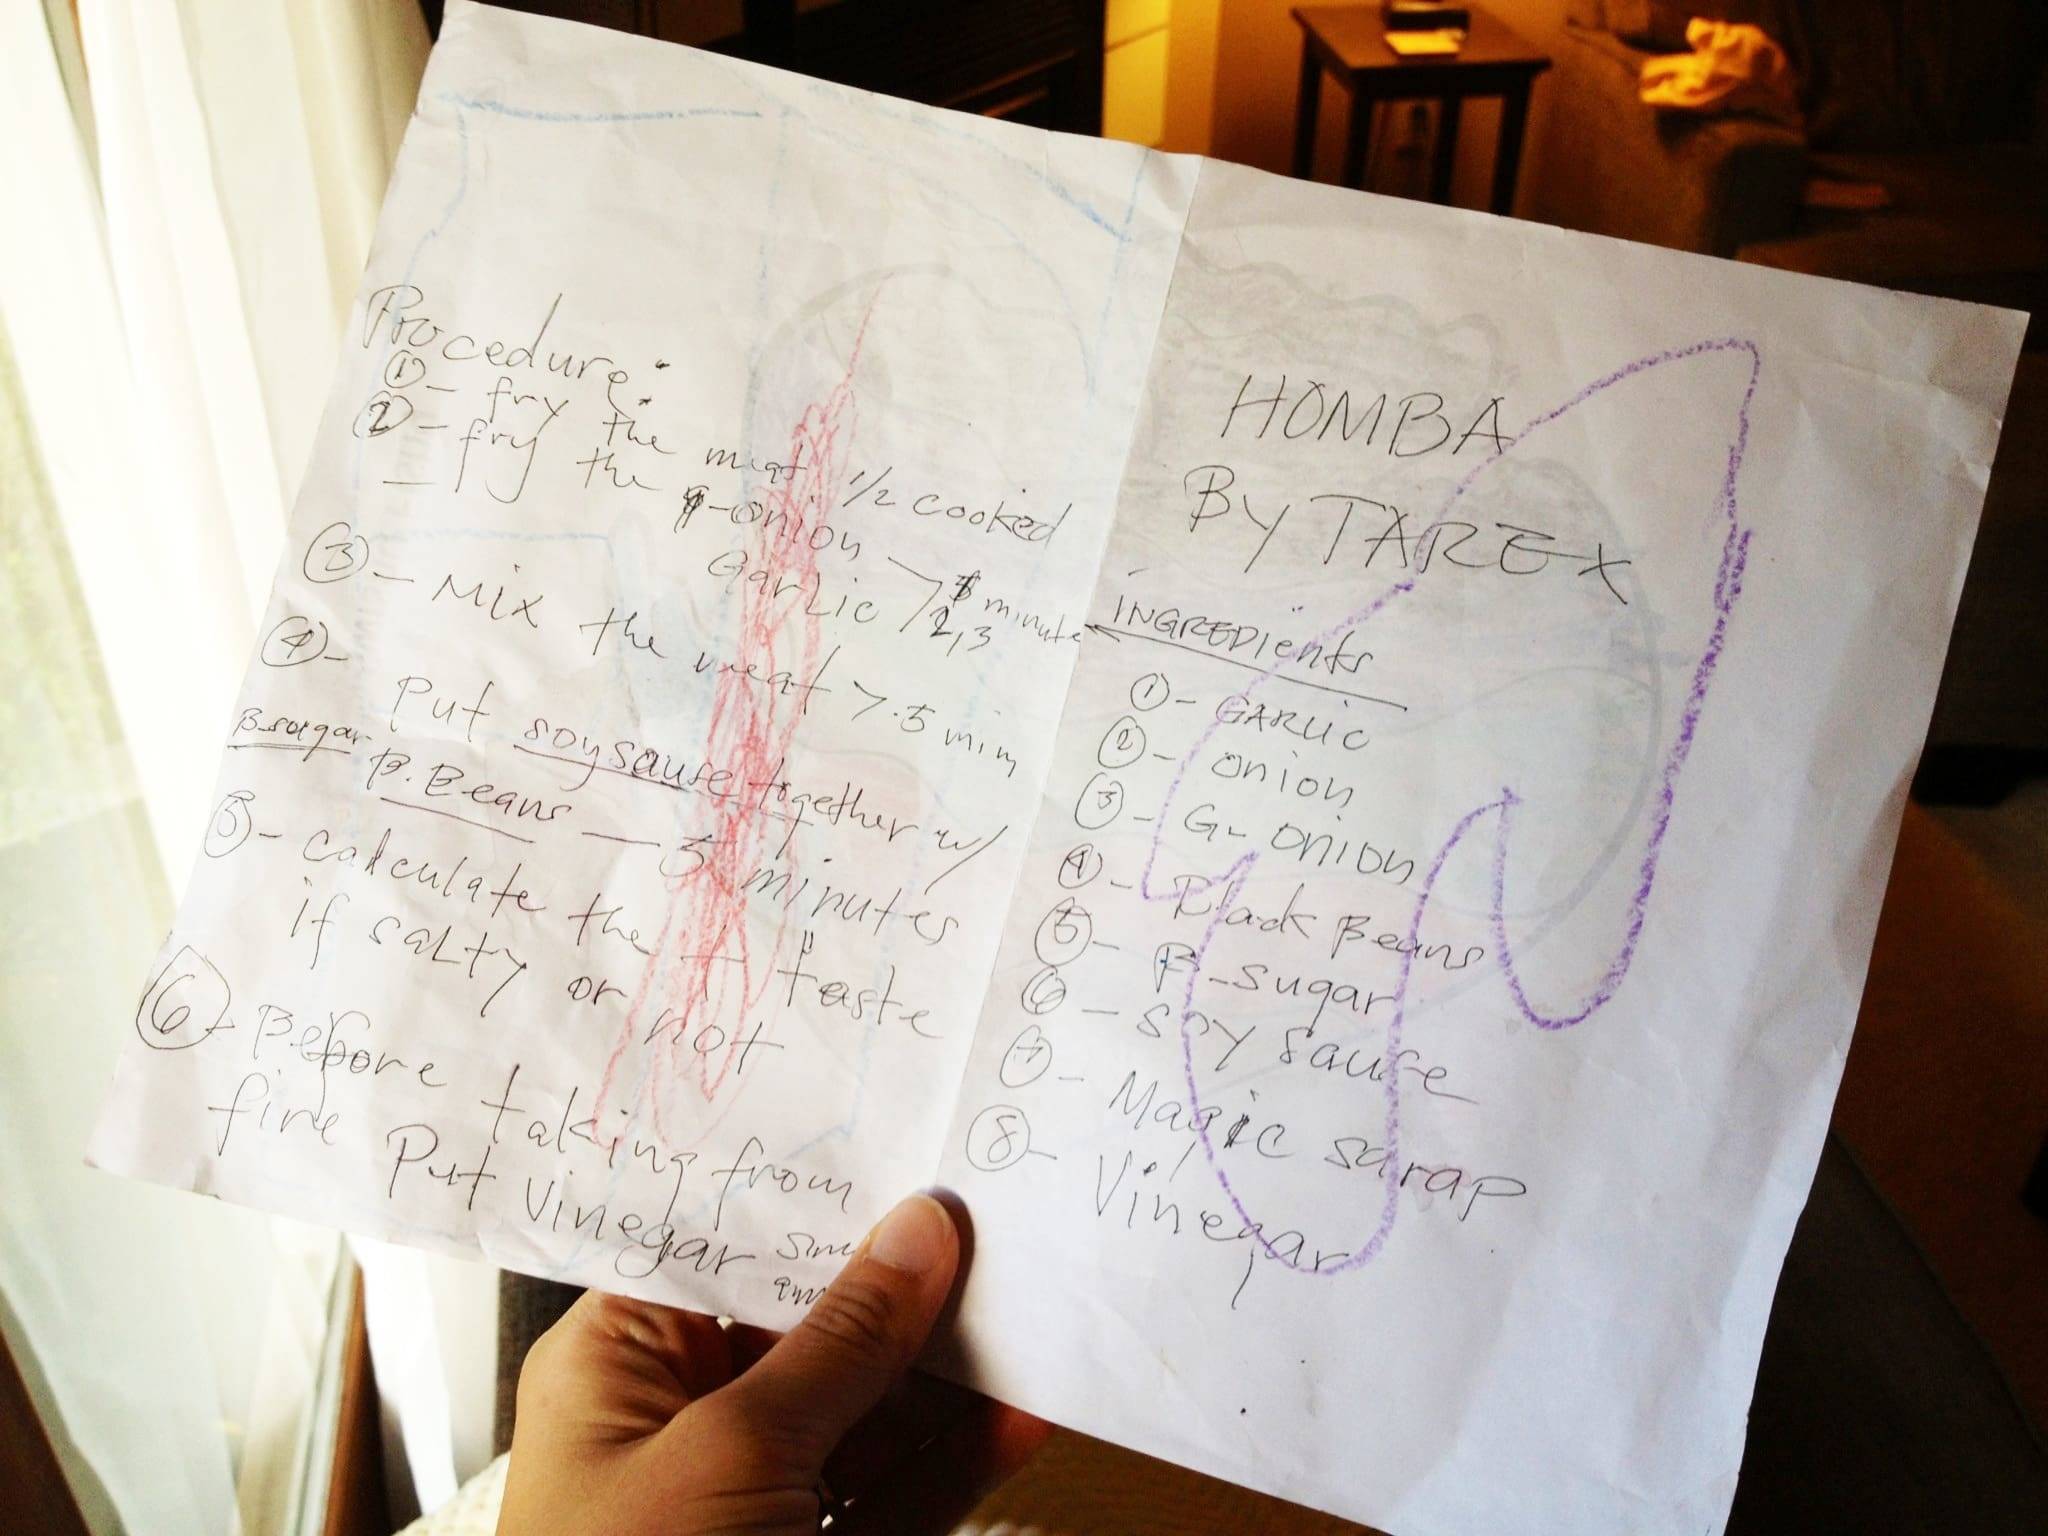 Procedure:
① - fry the meat 1/2 cooked
② - fry the onion
Garlic > 2,3 minute
③ - Mix the meat > 5 min
④ - Put soysause together w/
B-sugar B. Beans — 5 minutes
⑤ - calculate the taste
if salty or not
⑥ - Before taking from
fire Put Vinegar
HOMBA
By TAREX
INGREDients
① - GARLIC
② - onion
③ - G- onion
④ - Black Beans
⑤ - B-sugar
⑥ - soy sause
⑦ - Magic sarap
⑧ - Vinegar